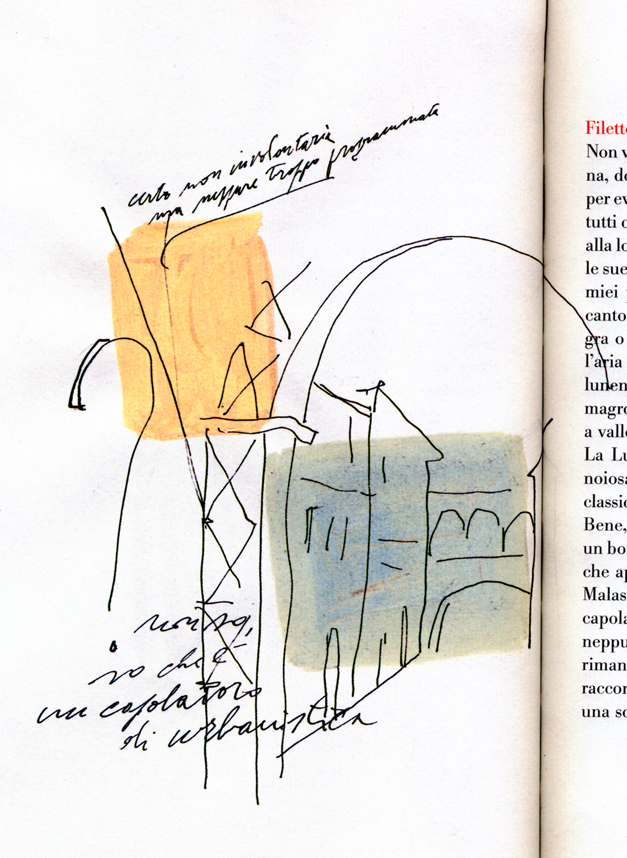 certo non involontaria
ma neppure troppo programmata
non so,
so che è
un capolavoro
di urbanistica
Filetto
Non v
na, do
per ev
tutti o
alla lo
le sue
miei p
canto
gra o
l'aria
lunen
magro
a valle
La Lu
noiosa
classic
Bene,
un bor
che ap
Malas
capola
neppu
riman
raccon
una so